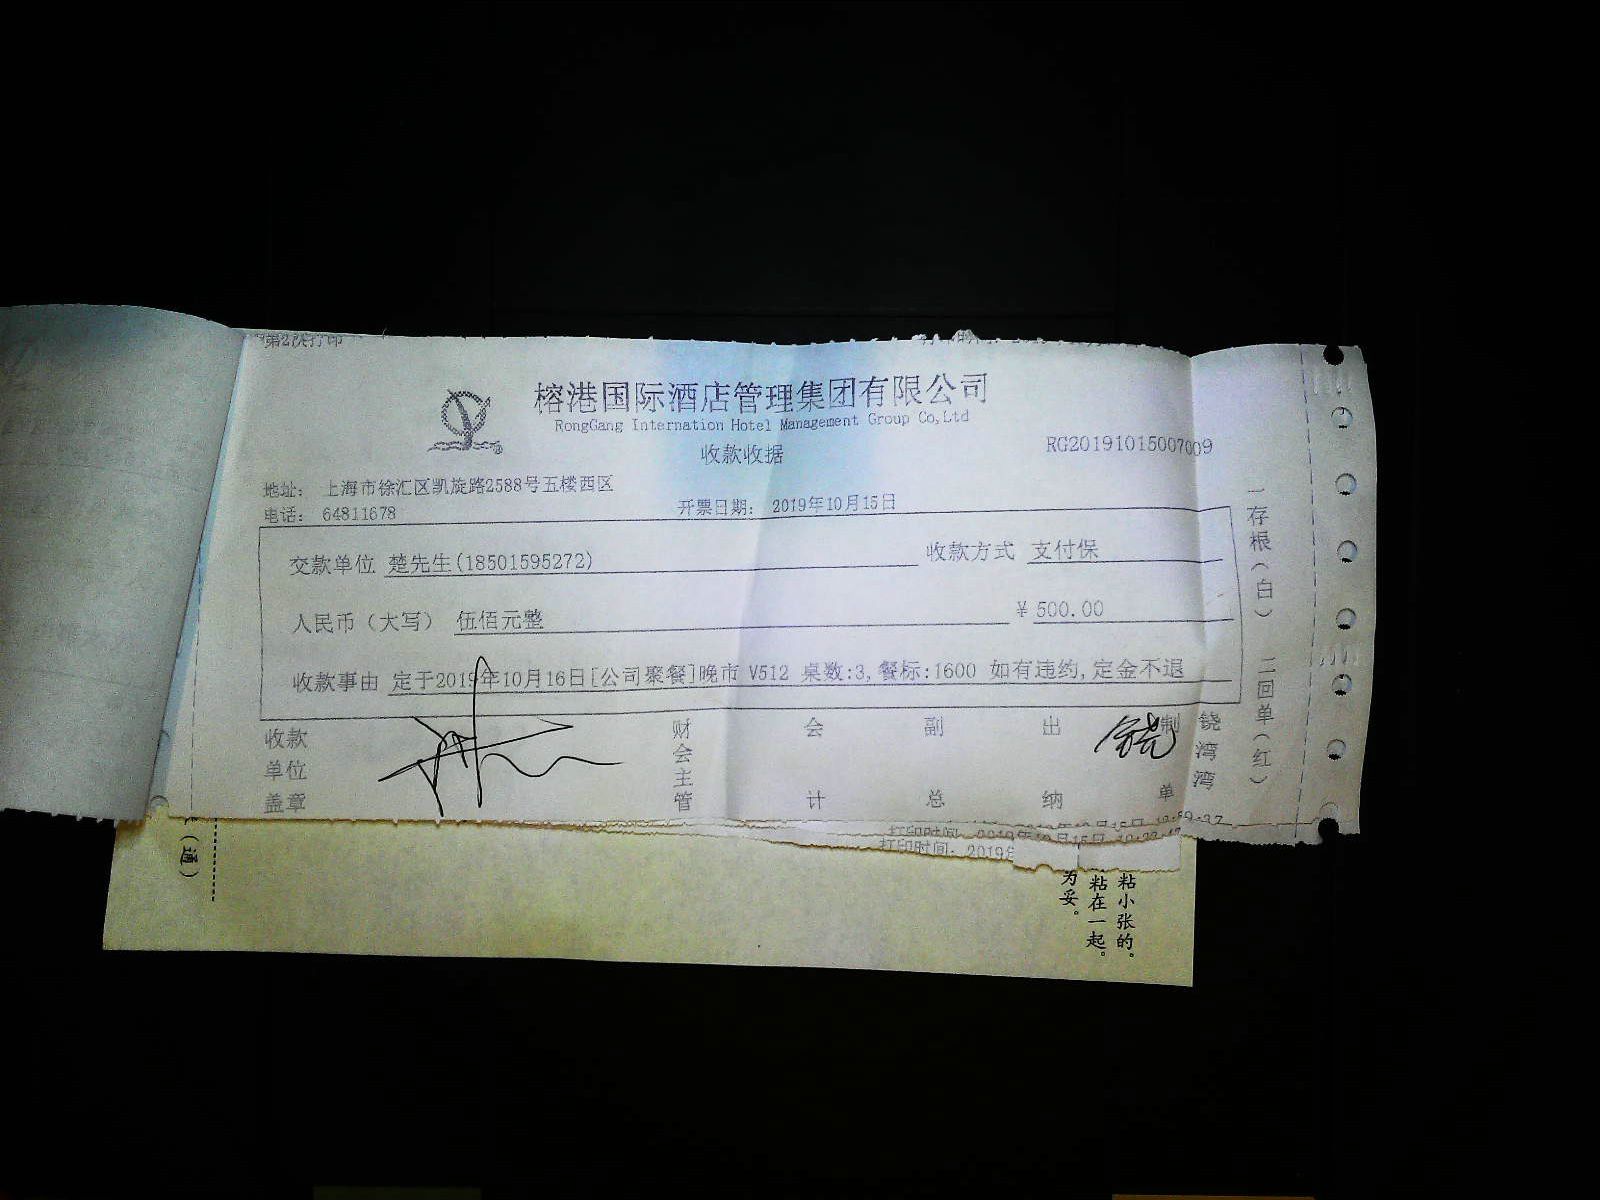 第2次打印
榕港国际酒店管理集团有限公司
RongGang Internation Hotel Management Group Co,Ltd
收款收据
RG20191015007009
地址： 上海市徐汇区凯旋路2588号五楼西区
电话： 64811678
开票日期： 2019年10月15日
交款单位 楚先生(18501595272)
收款方式 支付保
人民币（大写） 伍佰元整
¥ 500.00
收款事由 定于2019年10月16日[公司聚餐]晚市 V512 桌数:3,餐标:1600 如有违约,定金不退
收款单位盖章
财会主管
会计
副总
出纳
制单
饶湾湾
一存根（白）
二回单（红）
打印时间: 2019年10月15日
打印时间: 2019
（通）
粘小张的。
粘在一起。
为妥。